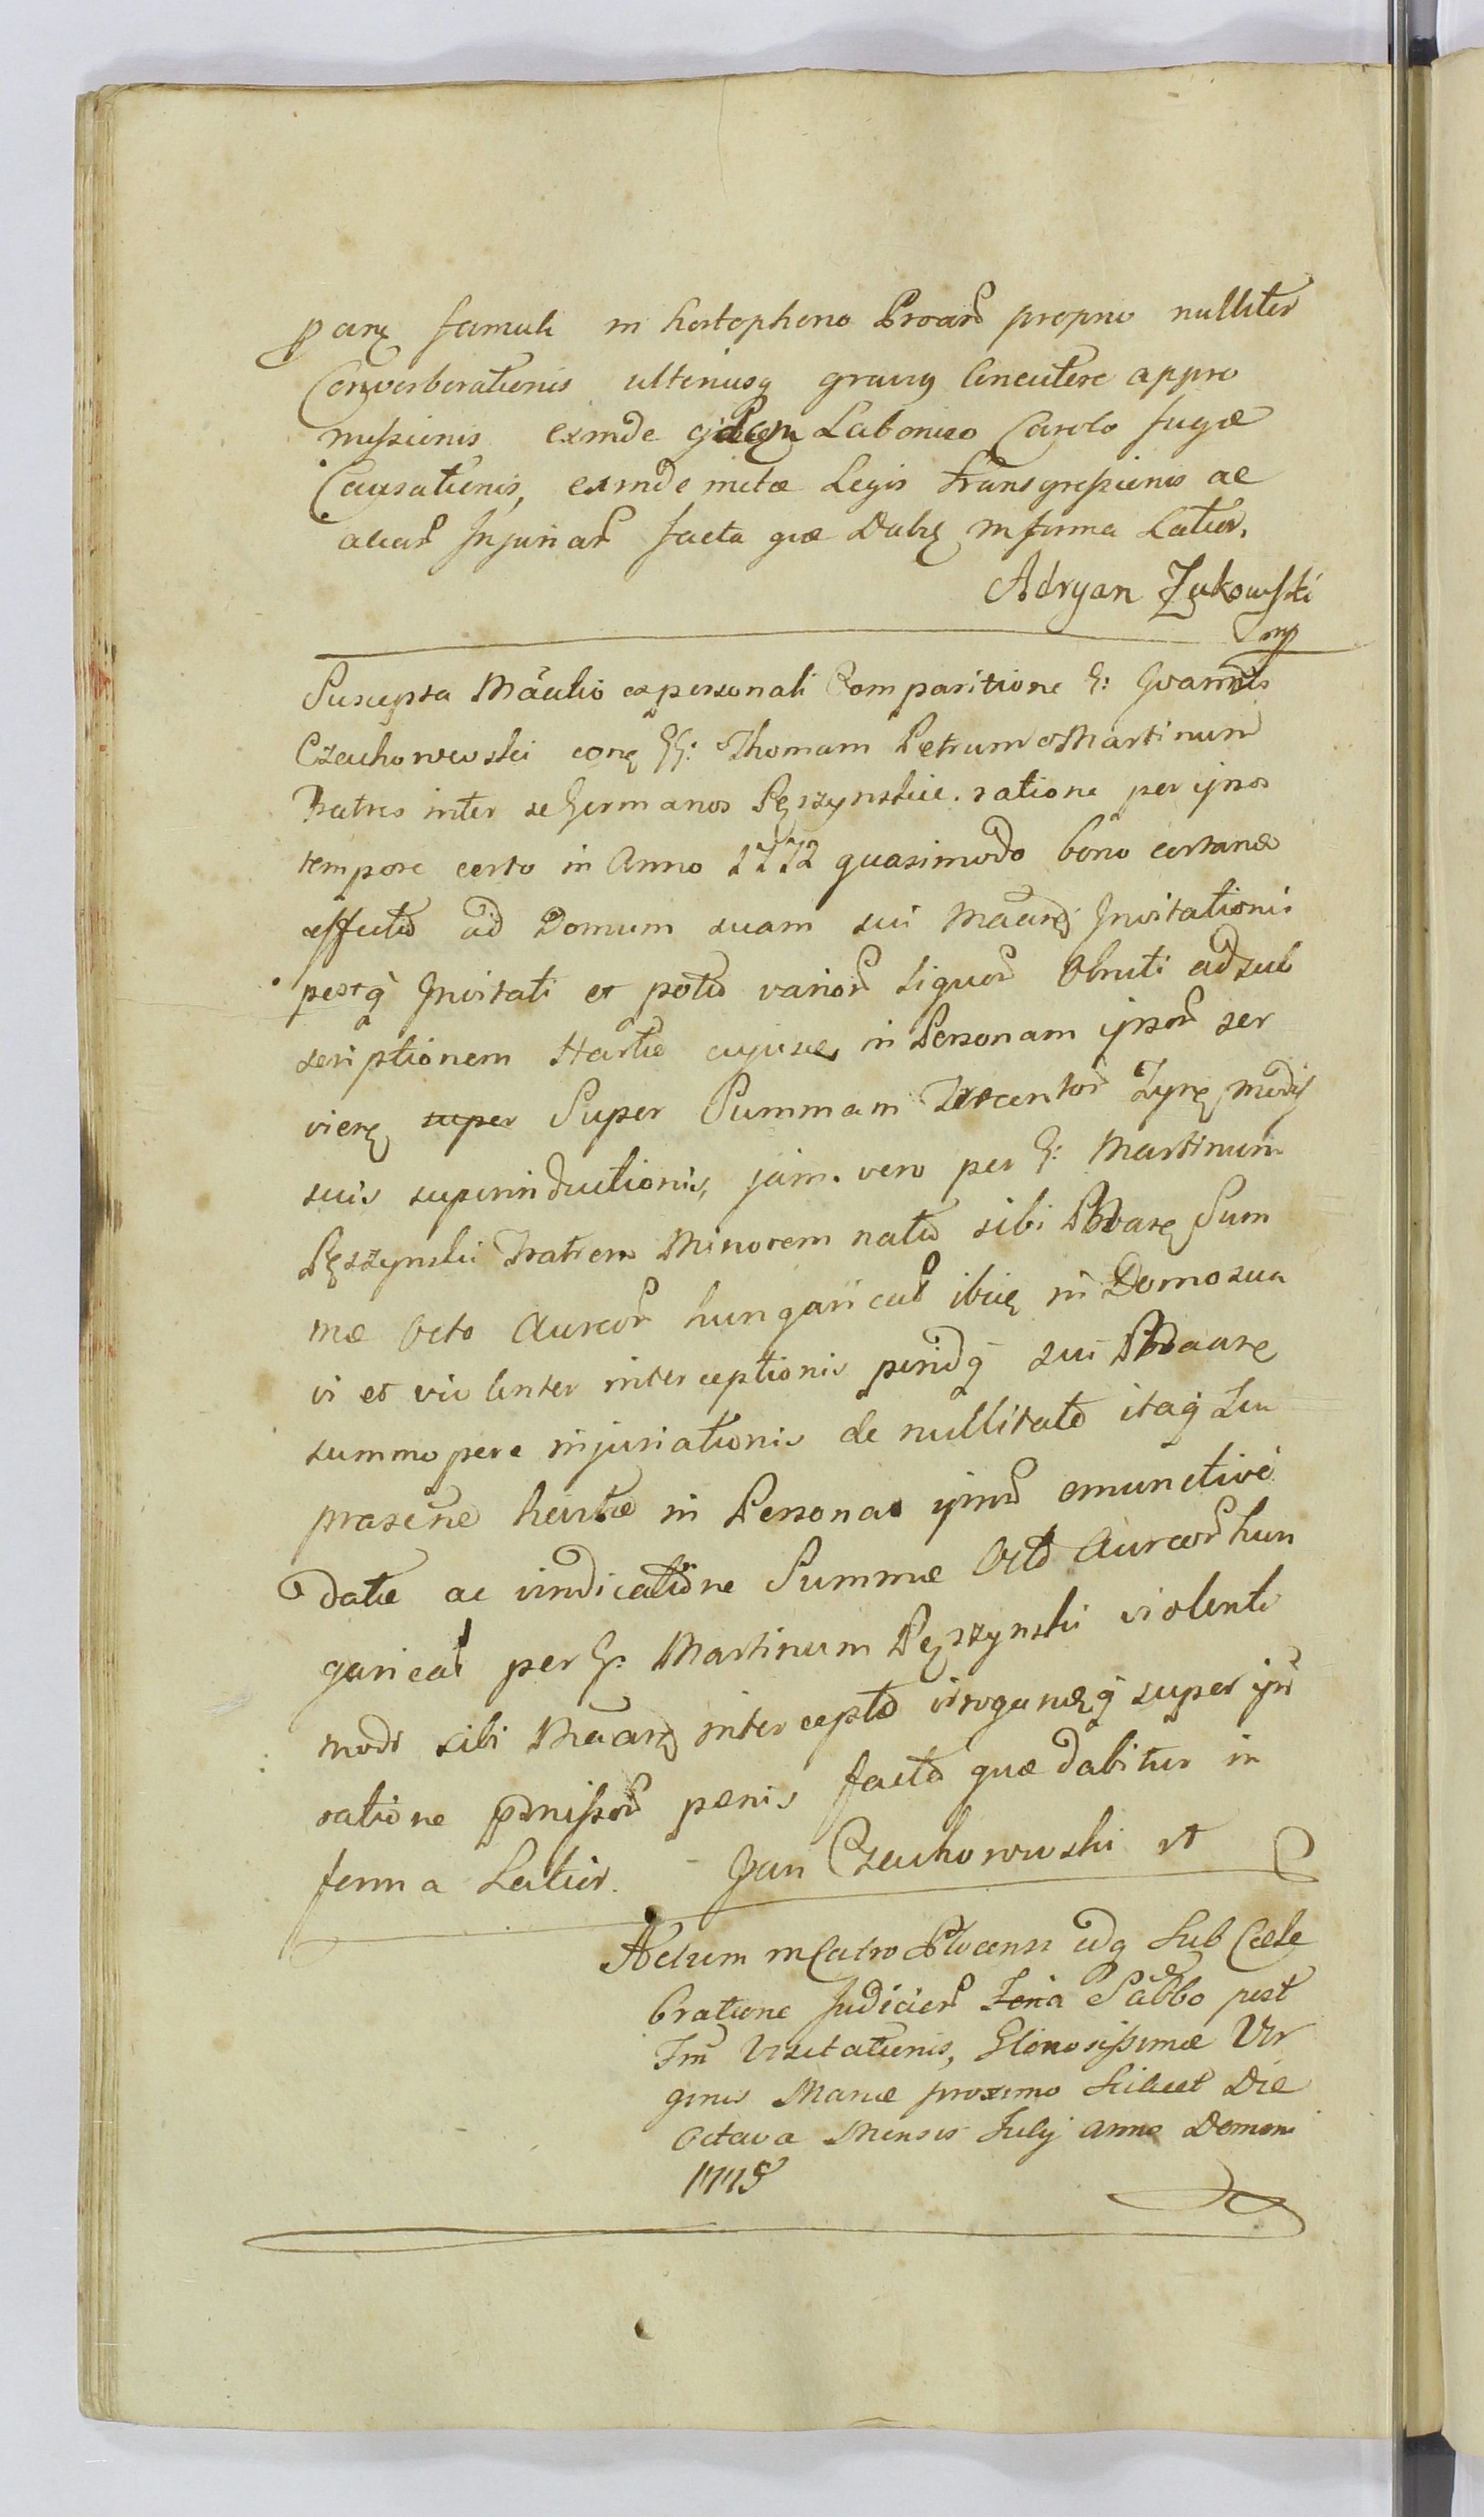 parꝫ famuli in hortophono Proarũ proprio nulliter
Converberationis ulteriusqꝫ gravius Concutere appro
missionis exinde Labonieo Carolo fugæ
Causationis, exinde metæ Legis transgressionis ac
aliarũ Injuriarũ facta quæ Dabꝫ in forma Latior.
Adryan Zukowski
mp
Suscepta Mãulio ex personali Comparitione G: Joannis
Czachorowski conꝫ GG: Thomam Petrum et Martinum
Fratres inter se Germanos Pęszynskie. ratione per ipsos
tempore certo in Anno 1772 quasimodo bono certamē
affectu ad Domum suam sui Maarꝫ Invitationis
postqꝫ Invitati et potu variorũ Liquorũ Obruti ad sub
scriptionem Hartæ cujusve in Personam ipsorũ ser
vienꝫ super Super Summam Trecentorũ Tynꝫ modis
suis superinductionis, jam. vero per G: Martinum
Pęszynski Fratrem Minorem natu sibi Sum
mæ Octo Aureorũ hungaricał ibiꝫ in Domo sua
vi et violenter interceptionis perindqꝫ sui
summopere injuriationis de nullitate itaqꝫ Seu
præsẽne hartæ in Personas ipsorũ emunctive
Datæ ac vindicatione Summæ Octo Aureorũ hun
garicał per G: Martinum Pęszynski violento
modo sibi Maarꝫ intercepto irroganꝫqꝫ super ipsis
ratione præmissorũ pœnis facta quæ dabitur in
forma Latior. Jan Czachorowski rt
Actum in Castro Plocensi idqꝫ Sub Cele
bratione Judiciorũ Feria Sabbo post
Fm̃ Vizitationis, Gloriosissimæ Vir
ginis Mariæ proximo Scilicet Die
Octava Mensis Julij anno Domini
1775